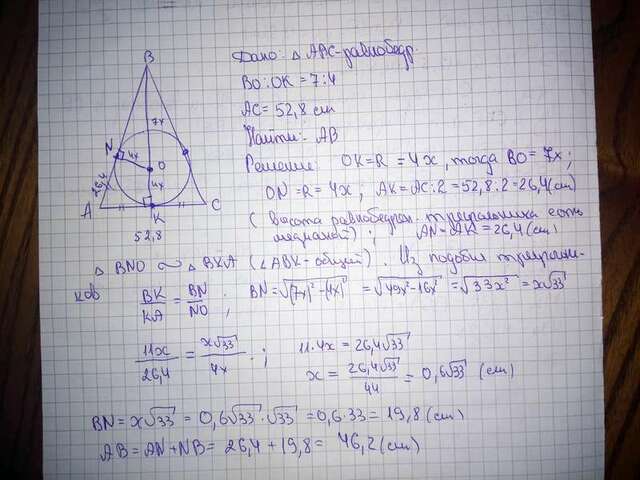 Дано: △ ABC-равнобедр.
BO:OK = 7:4
AC = 52,8 cm
Найти: AB
Решение: OK=R=4x, тогда BO=7x;
ON=R=4x; AK=AC:2=52,8:2=26,4(cm)
(высота равнобедрен. треугольника есть
медианой); AN=AK=26,4(cm)
△ BNO ∼ △ BKA (∠ABK-общий). Из подобия треугольни-
ков BK/KA = BN/NO; BN=√((7x)²-(4x)²) = √(49x²-16x²) = √(33x²) = x√33
11x/26,4 = x√33/4x; 11·4x = 26,4√33
x = 26,4√33/44 = 0,6√33 (cm)
BN = x√33 = 0,6√33·√33 = 0,6·33 = 19,8 (cm)
AB = AN+NB = 26,4+19,8 = 46,2 (cm)
B
7x
N
4x
O
26,4
4x
A
K
C
52,8